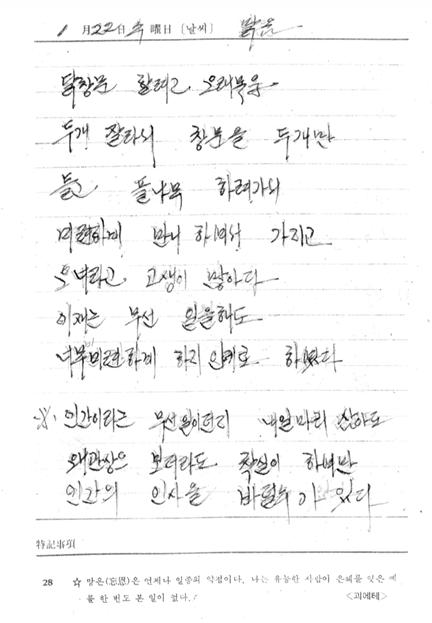 1 月 22 日 수 曜日 〔날씨〕 맑음
닭창문 할려고 오래목욱
두개 잘라서 창문을 두개만
들고 풀나무 하려가서
미련하게 만니 하여서 가지고
오너라고 고생이 많아다
이재는 무선 일을해도
너무미련하게 하지 안키로 하였다
※ 인간이라는 무선일이던지 내일마리 삼아도
왜관상으 보더라도 착실이 하며만
인간의 인사을 바들수가 있다
特記事項
28 ☆ 망은(忘恩)은 언제나 일종의 약점이다. 나는 유능한 사람이 은혜를 잊은 예
를 한 번도 본 일이 없다.
<괴에테>